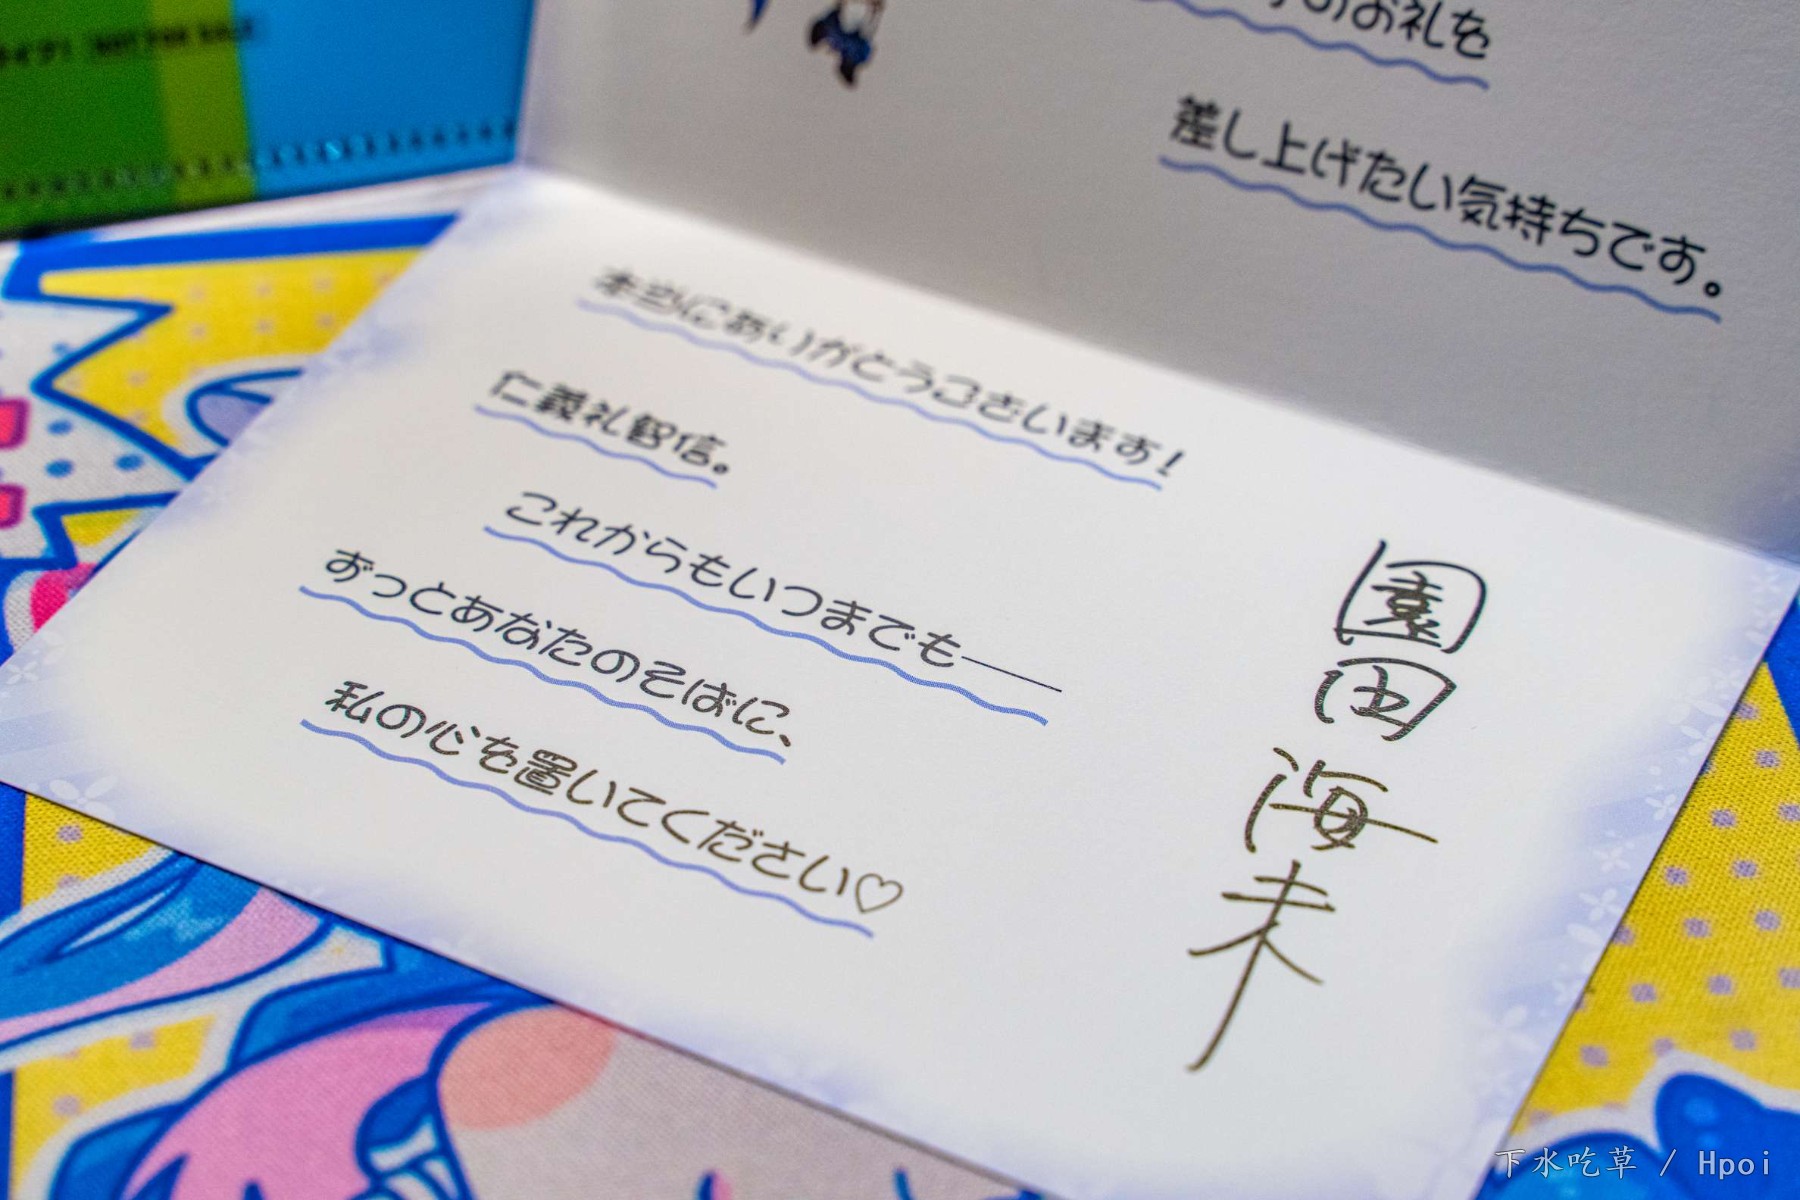 NOT FOR SALE
のお礼を
差し上げたい気持ちです。
本当にありがとうございます！
仁義礼智信。
これからもいつまでも――
ずっとあなたのそばに、
私の心を置いてください♡
園田海未
下水吃草 / Hpoi